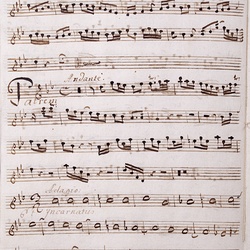 Andante.
Patrem
Adagio
Incarnatus